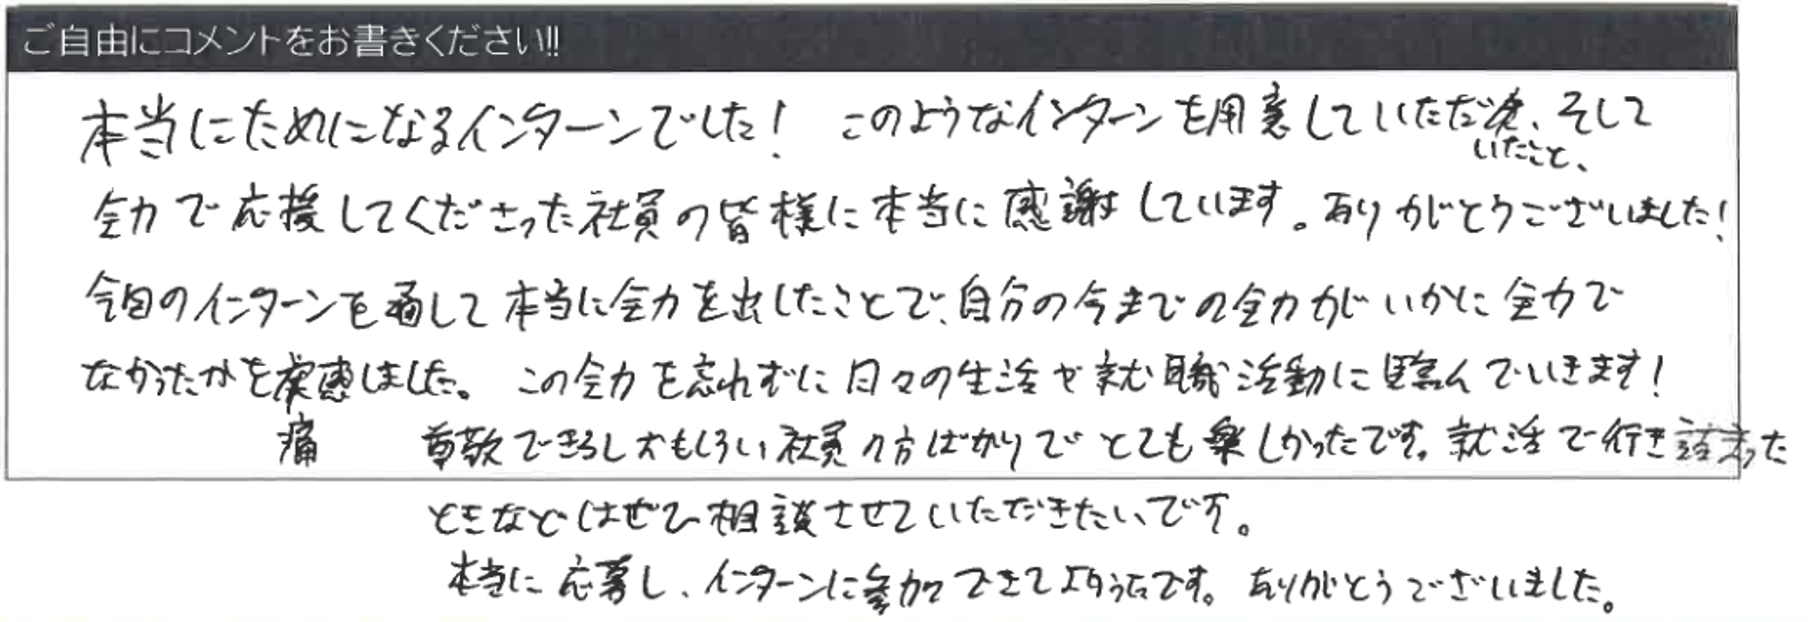 ご自由にコメントをお書きください!!
本当にためになるインターンでした！ このようなインターンを用意していただいたこと、そして
全力で応援してくださった社員の皆様に本当に感謝しています。ありがとうございました！
今回のインターンを通して本当に全力を出したことで、自分の今までの全力がいかに全力で
なかったかを痛感しました。この全力を忘れずに日々の生活や就職活動に臨んでいきます！
尊敬できるしおもしろい社員の方ばかりでとても楽しかったです。就活で行き詰まった
ときなどはぜひ相談させていただきたいです。
本当に応募し、インターンに参加できてよかったです。ありがとうございました。